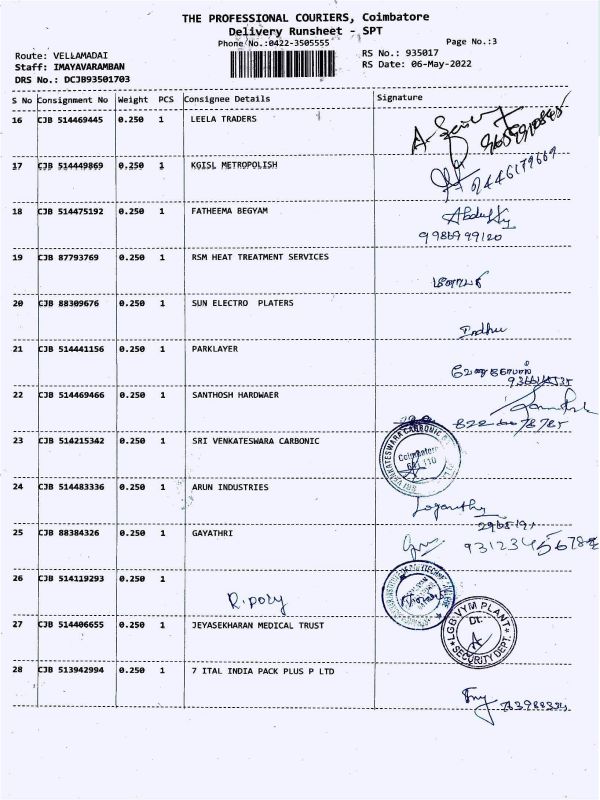 THE PROFESSIONAL COURIERS, Coimbatore
Delivery Runsheet - SPT
Phone No.:0422-3505555
Page No.:3
Route: VELLAMADAI
RS No.: 935017
Staff: IMAYAVARAMBAN
RS Date: 06-May-2022
DRS No.: DCJB93501703
S No Consignment No Weight PCS Consignee Details Signature
16 CJB 514469445 0.250 1 LEELA TRADERS
17 CJB 514449869 0.250 1 KGISL METROPOLISH
18 CJB 514475192 0.250 1 FATHEEMA BEGYAM
19 CJB 87793769 0.250 1 RSM HEAT TREATMENT SERVICES
20 CJB 88309676 0.250 1 SUN ELECTRO PLATERS
Indhu
21 CJB 514441156 0.250 1 PARKLAYER
22 CJB 514469466 0.250 1 SANTHOSH HARDWAER
23 CJB 514215342 0.250 1 SRI VENKATESWARA CARBONIC
24 CJB 514483336 0.250 1 ARUN INDUSTRIES
25 CJB 88384326 0.250 1 GAYATHRI
26 CJB 514119293 0.250 1
27 CJB 514406655 0.250 1 JEYASEKHARAN MEDICAL TRUST
LGB VYM PLANT
Dt.
SECURITY DEPT.
28 CJB 513942994 0.250 1 7 ITAL INDIA PACK PLUS P LTD